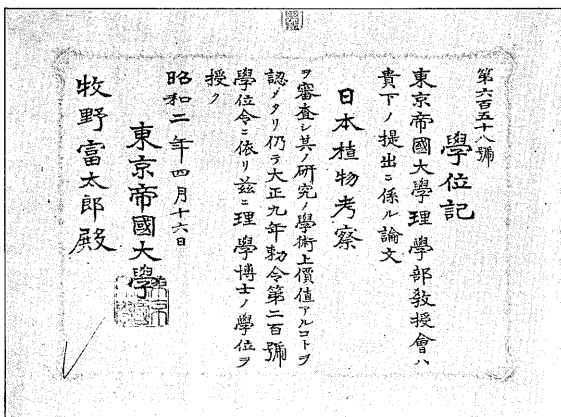 第六百五十八號
學位記
東京帝國大學理學部敎授會ハ
貴下ノ提出ニ係ル論文
日本植物考察
ヲ審査シ其ノ研究ノ學術上價値アルコトヲ
認メタリ仍テ大正九年勅令第二百號
學位令ニ依リ玆ニ理學博士ノ學位ヲ
授ク
昭和二年四月十六日
東京帝國大學
牧野富太郎殿